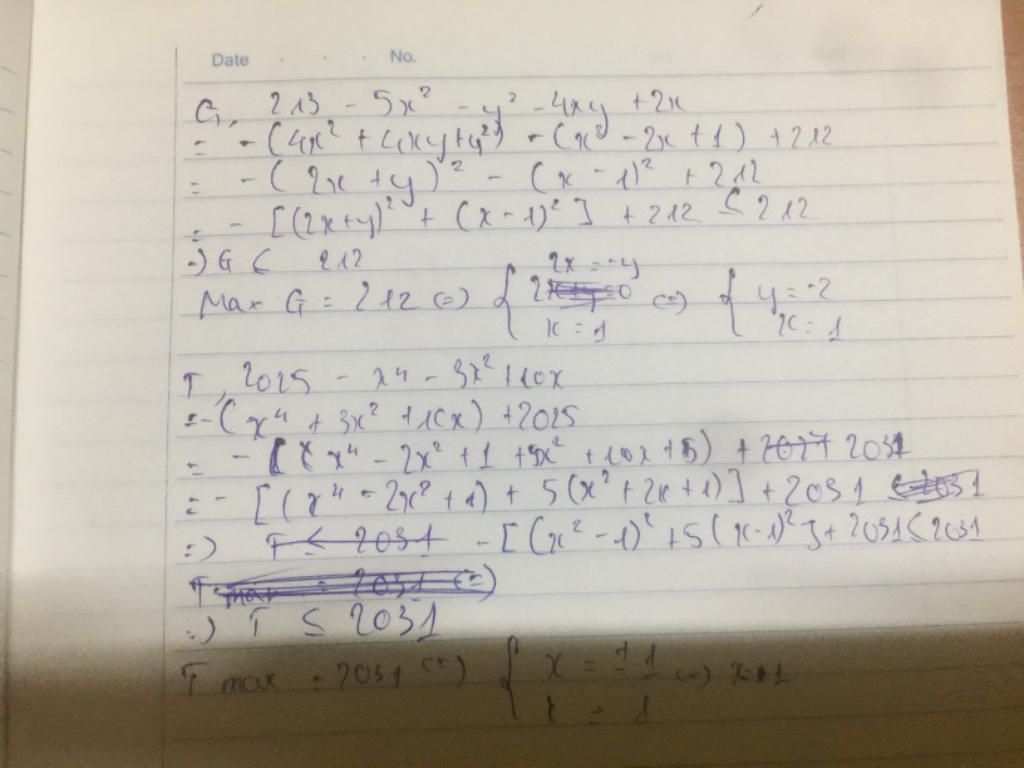 Date . . . No.
G, 213 - 5x² - y² - 4xy + 2x
= - (4x² + 4xy + y²) - (x² - 2x + 1) + 212
= - (2x + y)² - (x - 1)² + 212
= - [(2x+y)² + (x - 1)²] + 212 ≤ 212
=) G ≤ 212
Max G = 212 (=) { 2x = -y x = 1 (=) { y = -2 x = 1
T, 2025 - x⁴ - 3x² + 10x
= - (x⁴ + 3x² + 10x) + 2025
= - [(x⁴ - 2x² + 1 + 5x² + 10x + 5) + 2031
= - [(x⁴ - 2x² + 1) + 5(x² + 2x + 1)] + 2031
=) - [(x² - 1)² + 5(x - 1)²] + 2031 ≤ 2031
=) T ≤ 2031
T max = 2031 (=) { x = ± 1 x = 1 (=) x = 1